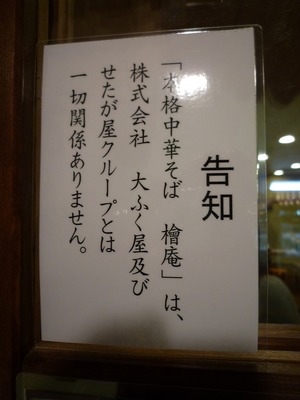 告知
「本格中華そば　檜庵」は、
株式会社　大ふく屋及び
せたが屋クループとは
一切関係ありません。